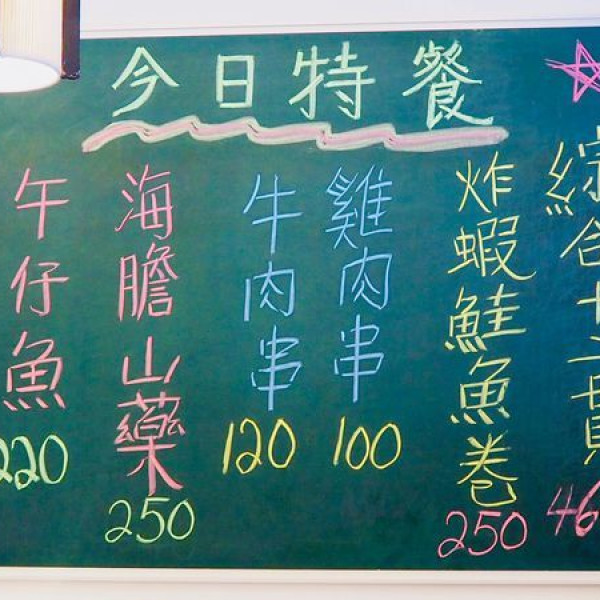 今日特餐
綜合十二貫
炸蝦鮭魚卷
250
雞肉串
100
牛肉串
120
海膽山藥
250
午仔魚
220